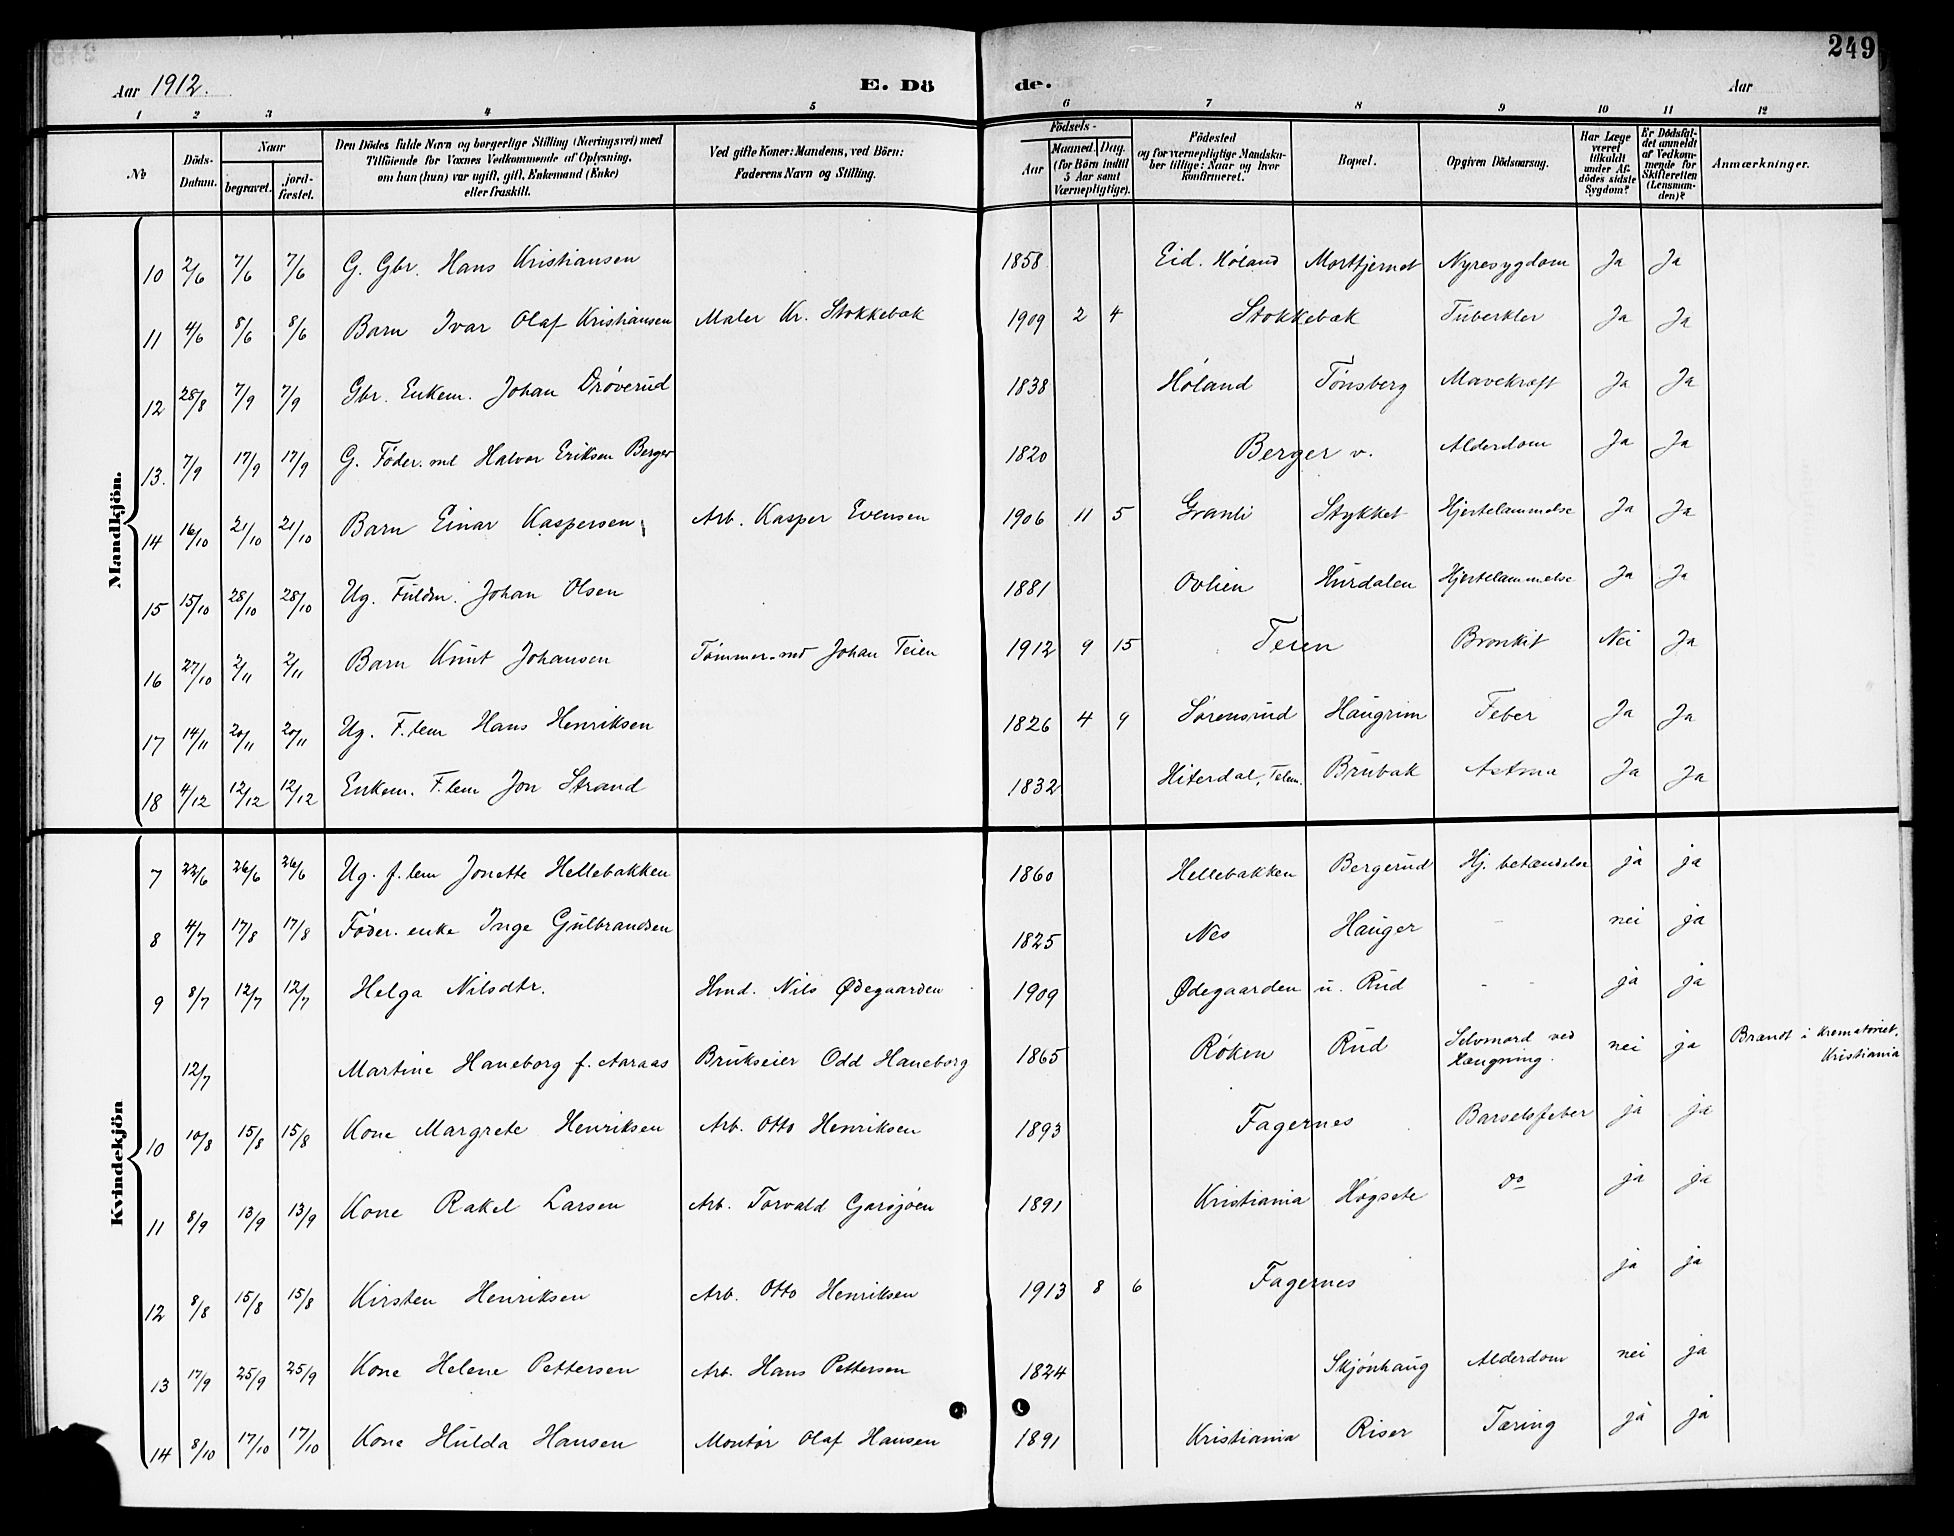 249
Aar 1912. E. Dö de. Aar
1 2 3 4 5 6 7 8 9 10 11 12
No
Döds-Datum.
Naar
begravet.
jord-fæstet.
Den Dödes fulde Navn og borgerlige Stilling (Næringsvei) med
Tilföiende for Voxnes Vedkommende af Oplysning,
om han (hun) var ugift, gift, Enkemand (Enke)
eller fraskilt.
Ved gifte Koner: Mandens, ved Börn:
Faderens Navn og Stilling.
Födsels-
Aar
Maaned. Dag.
(for Börn indtil
5 Aar samt
Værnepligtige).
Födested
og for værnepligtige Mandska-
ber tillige: Naar og hvor
konfirmeret.
Bopæl.
Opgiven Dödsaarsag.
Har Læge
været
tilkaldt
under Af-
dödes sidste
Sygdom?
Er Dödsfal-
det anmeldt
af Vedkom-
mende for
Skifteretten
(Lensman-
den)?
Anmærkninger.
Mandkjön.
10 2/6 7/6 7/6 G. Gbr. Hans Kristiansen 1858 Eid. Høland Morttjernet Nyresygdom Ja Ja
11 4/6 8/6 8/6 Barn Ivar Olaf Kristiansen Maler Kr. Stokkebæk 1909 2 4 Stokkebæk Tuberkler Ja Ja
12 28/8 7/9 7/9 Gbr. Enkem. Johan Drøverud 1838 Høland Tønsberg Mavekræft Ja Ja
13. 7/9 17/9 17/9 G. Føder.md Halvor Eriksen Berger 1820 Berger v. Alderdom Ja Ja
14 16/10 21/10 21/10 Barn Einar Kaspersen Arb. Kasper Evensen 1906 11 5 Granli Stykket Hjertelammelse Ja Ja
15 15/10 28/10 28/10 Ug. Fuldm. Johan Olsen 1881 Ovlien Hurdalen Hjertelammelse Ja Ja
16 27/10 2/11 2/11 Barn Knut Johansen Tømmer.md Johan Teien 1912 9 15 Teien Bronkit Nei Ja
17 14/11 20/11 20/11 Ug. F.lem Hans Henriksen 1826 4 9 Sørensrud Haugrim Feber Ja Ja
18 4/12 12/12 12/12 Enkem. F.lem Jon Strand 1832 Hiterdal, Telem. Brubak Astma Ja Ja
Kvindekjön
7 22/6 26/6 26/6 Ug. f.lem Jonette Hellebakken 1860 Hellebakken Bergerud Hj. betændelse ja ja
8 4/7 17/8 17/8 Føder. enke Inge Gulbrandsen 1825 Nes Hauger - nei ja
9 8/7 12/7 12/7 Helga Nilsdtr. Hmd. Nils Ødegaarden 1909 Ødegaarden u. Rud - - ja ja
12/7 Martine Haneborg f. Aaraas Brukseier Odd Haneborg 1865 Røken Rud Selvmord ved Hængning. nei ja Brændt i Krematoriet, Kristiania
10 10/8 15/8 15/8 Kone Margrete Henriksen Arb. Otto Henriksen 1893 Fagernes Barselsfeber ja ja
11 8/9 13/9 13/9 Kone Rakel Larsen Arb. Torvald Garsjøen 1891 Kristiania Høgsete Do ja ja
12 8/8 15/8 15/8 Kirsten Henriksen Arb. Otto Henriksen 1913 8 6 Fagernes ja ja
13 17/9 25/9 25/9 Kone Helene Pettersen Arb. Hans Pettersen 1824 Skjønhaug Alderdom nei ja
14 8/10 17/10 17/10 Kone Hulda Hansen Montør Olaf Hansen 1891 Kristiania Riser Tæring ja ja